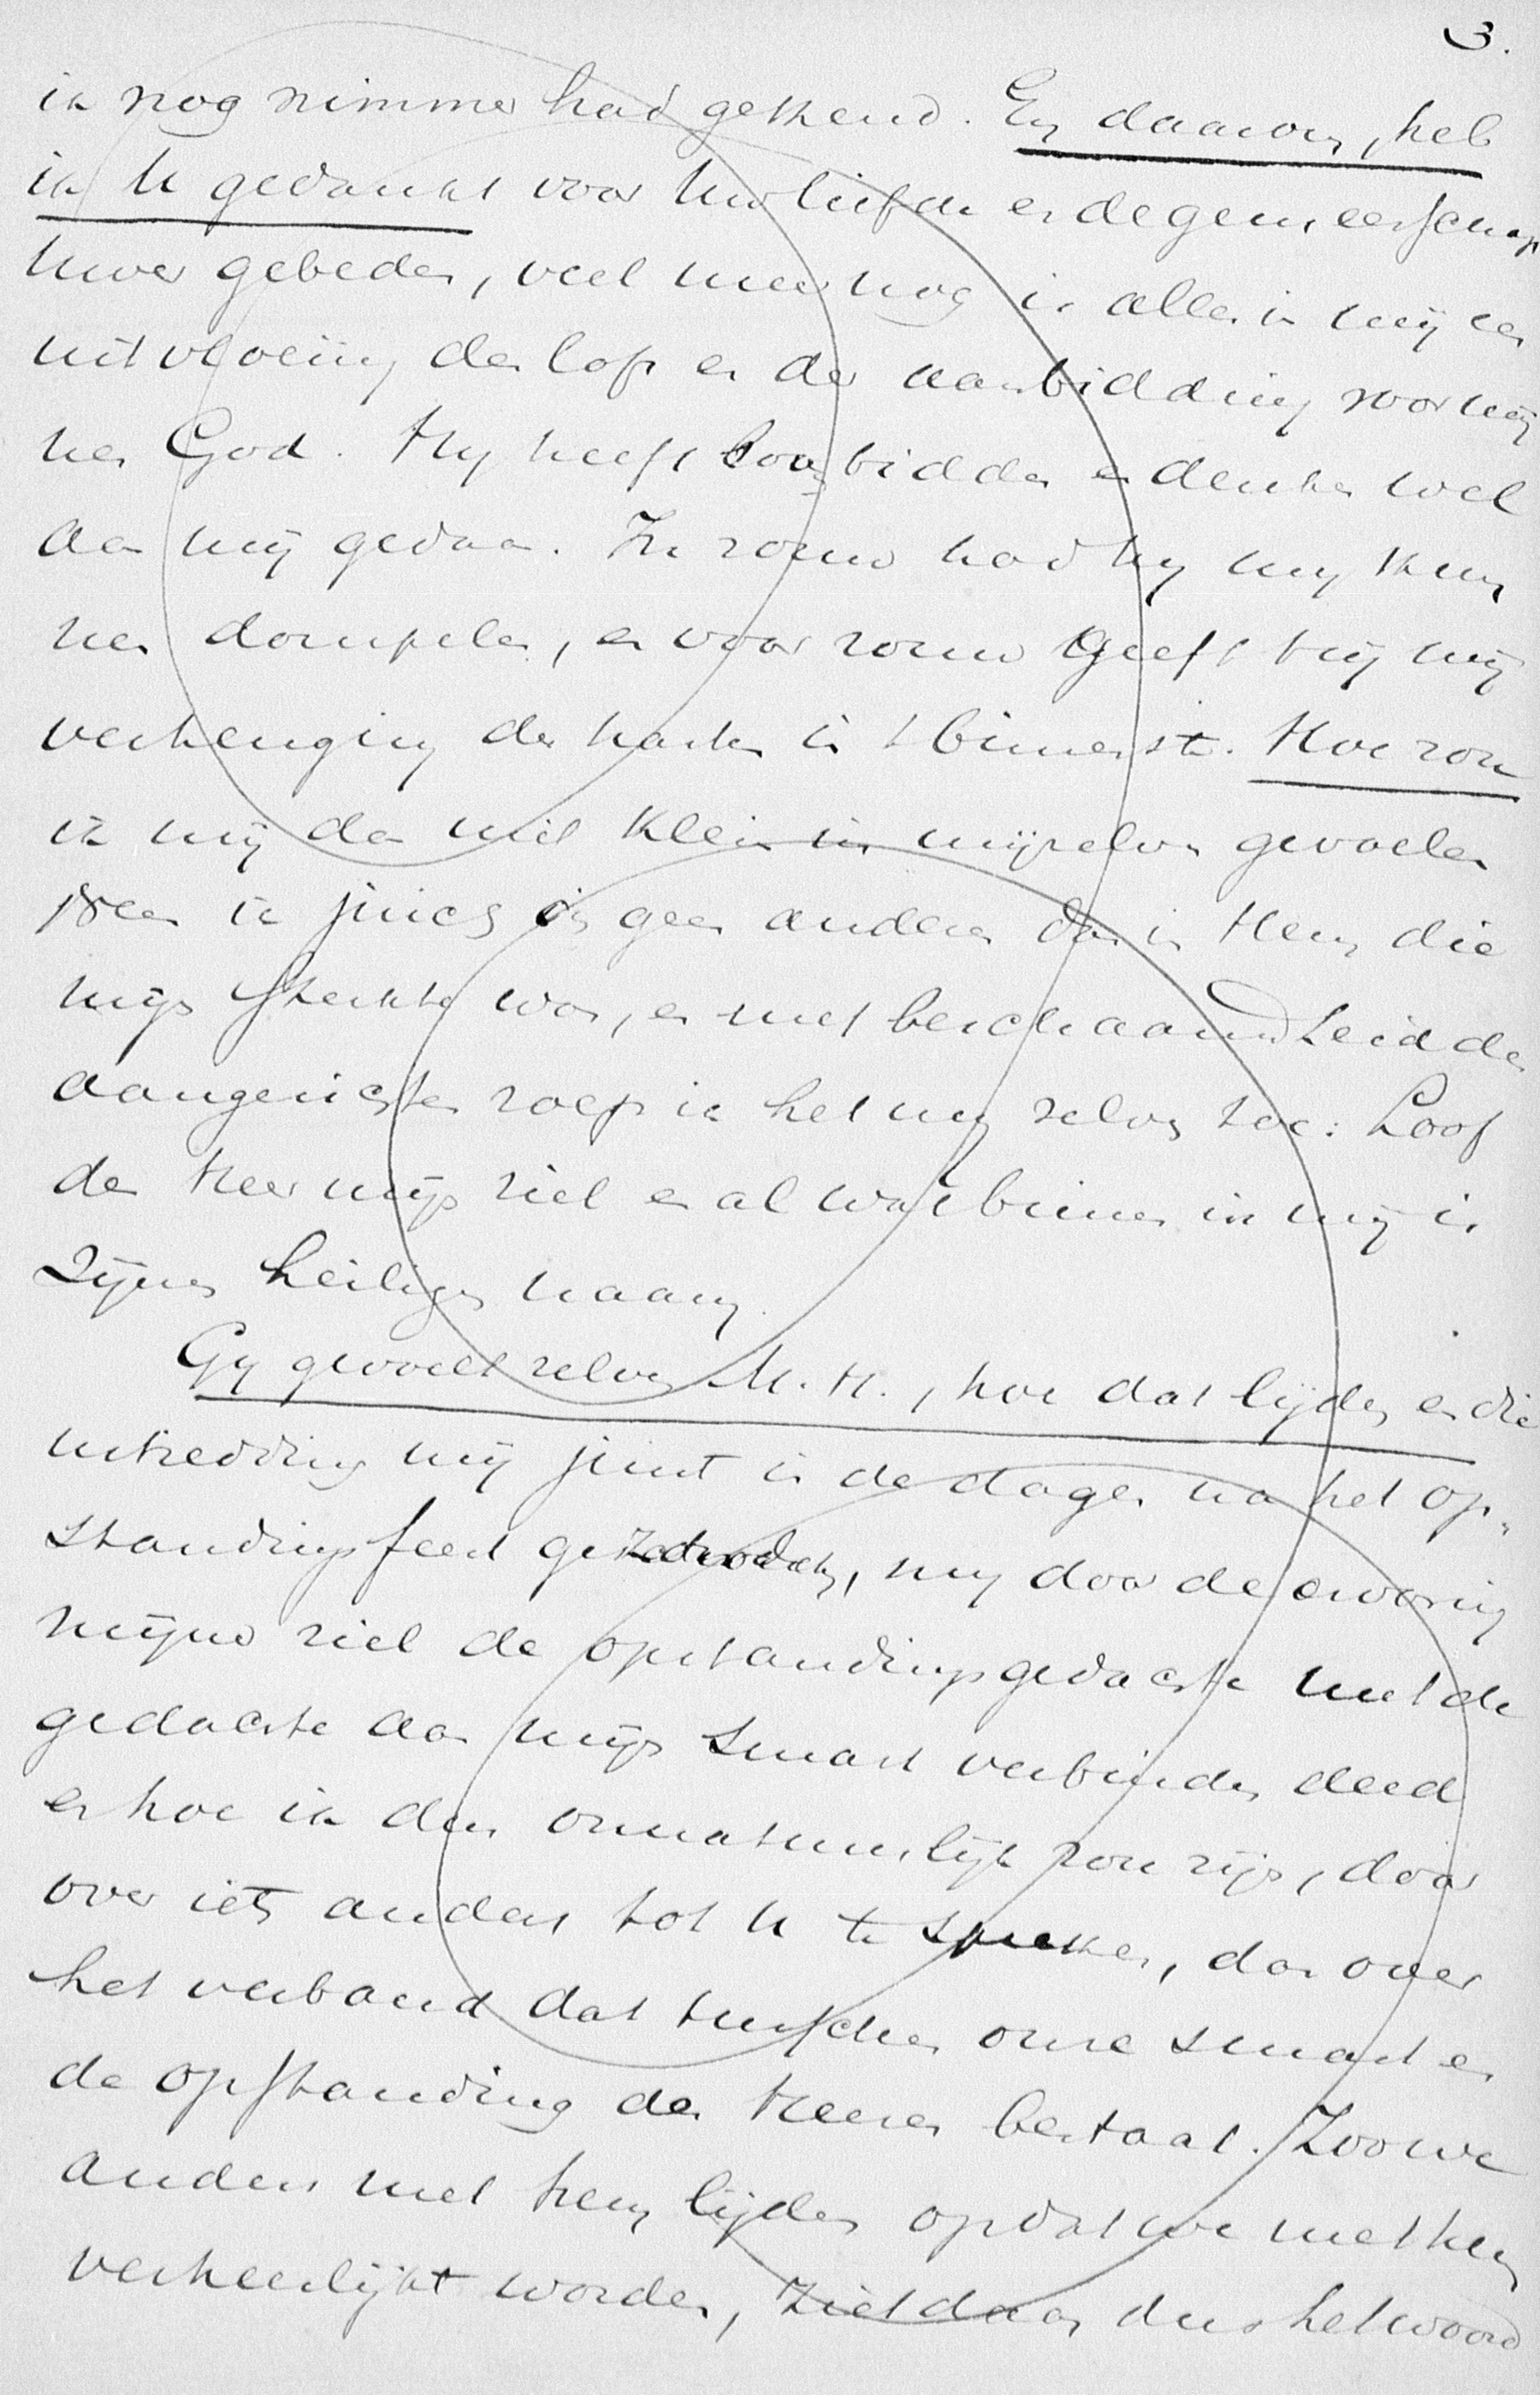 3.
ik nog nimmer had gekend. En daarom, heb
ik U gedankt voor Uw liefde en de gemeenschap
Uwer gebeden, veel meer nog is alles in mij een
uitvloeiing des lofs en der aanbidding voor mij
nen God. Hij heeft boven bidden en denken wel
aan mij gedaan. In rouw had hij mij kun
nen dompelen, en voor rouw geeft hij mij
verheuging des harten in 't binnenste. Hoe zou
ik mij dan niet klein in mijzelven gevoelen
Neen ik juich in geen anderen dan in Hem die
mijn sterkte was, en met beschaamdheid des
aangezichts roep ik het mij zelven toe: Loof
den Heer mijn ziel en al wat binnen in mij is
Zijnen heiligen naam.
Gij gevoelt zelven M. H., hoe dat lijden en die
uitredding mij juist in de dagen na het op-
standingsfeest, mij door de ervaring
mijner ziel de opstandingsgedachte met de
gedachte aan mijn smart verbinden deed
en hoe ik dus onnatuurlijk zou zijn, door
over iets anders tot U te spreken, dan over
het verband dat tusschen onze smart en
de opstanding des Heeren bestaat. Zoo we
anders met hem lijden opdat we met hem
verheerlijkt worden, ziet daar dus het woord